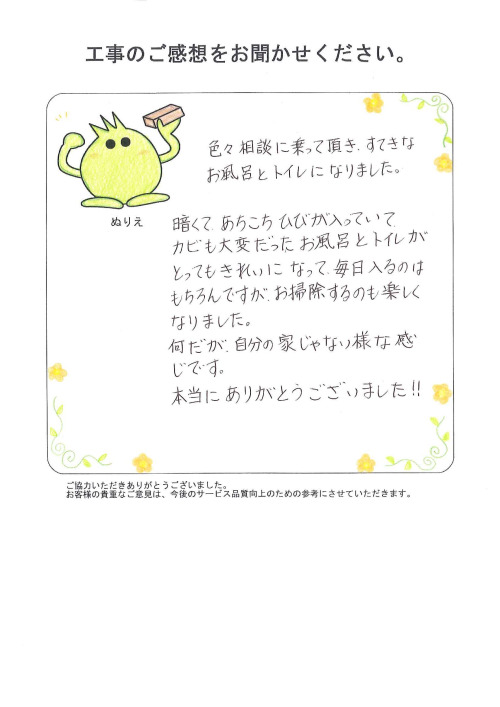 工事のご感想をお聞かせください。
色々相談に乗って頂き、すてきな
お風呂とトイレになりました。
ぬりえ
暗くて、あちこちひびが入っていて、
カビも大変だったお風呂とトイレが
とってもきれいになって、毎日入るのは
もちろんですが、お掃除するのも楽しく
なりました。
何だが、自分の家じゃない様な感
じです。
本当にありがとうございました!!
ご協力いただきありがとうございました。
お客様の貴重なご意見は、今後のサービス品質向上のための参考にさせていただきます。